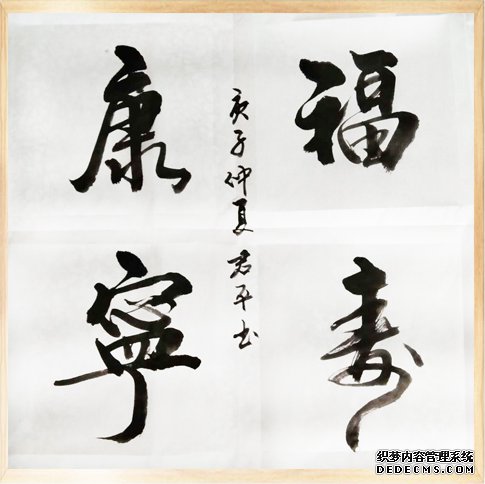 福壽
康寧
庚子仲夏 君平书
织梦内容管理系统
DEDECMS.COM